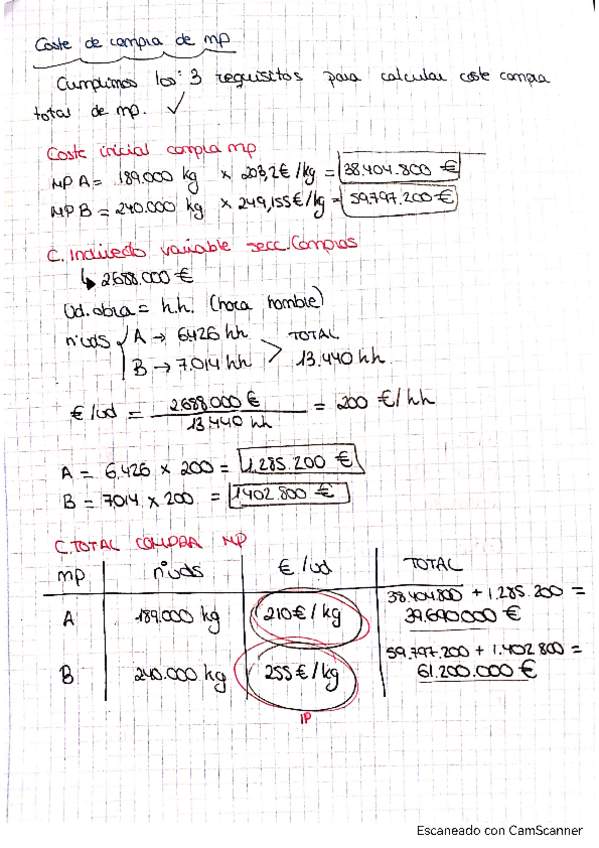 Coste de compra de mp
Cumplimos los 3 requisitos para calcular coste compra
total de mp. ✓
Coste inicial compra mp
MP A = 189.000 kg × 203,2€/kg = 38.404.800 €
MP B = 240.000 kg × 249,155€/kg = 59.797.200 €
C. Indirecto variable secc. Compras
↳ 2.688.000 €
Ud. obra = h.h. (hora hombre)
nºuds { A → 6.426 hh > TOTAL
B → 7.014 hh 13.440 hh
€/ud = 2.688.000 € / 13.440 hh = 200 €/hh
A = 6.426 × 200 = 1.285.200 €
B = 7014 × 200 = 1402.800 €
C.TOTAL COMPRA MP
mp nºuds €/ud TOTAL
A 189.000 kg 210€/kg 38.404.800 + 1.285.200 =
39.690.000 €
B 240.000 kg 255€/kg 59.797.200 + 1.402.802 =
61.200.000 €
IP
Escaneado con CamScanner